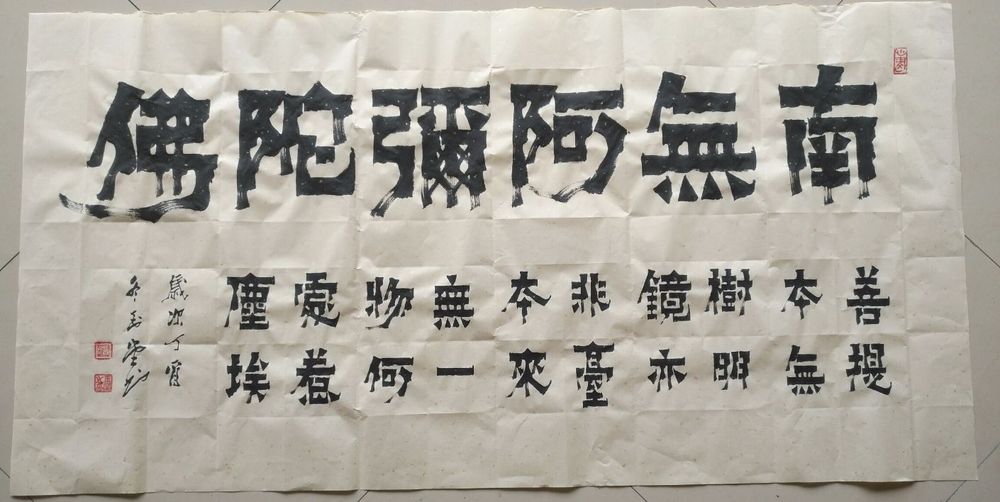 南無阿彌陀佛
善提
本無
樹明
鏡亦
非臺
本來
無一
物何
處惹
塵埃
歲次丁酉
冬